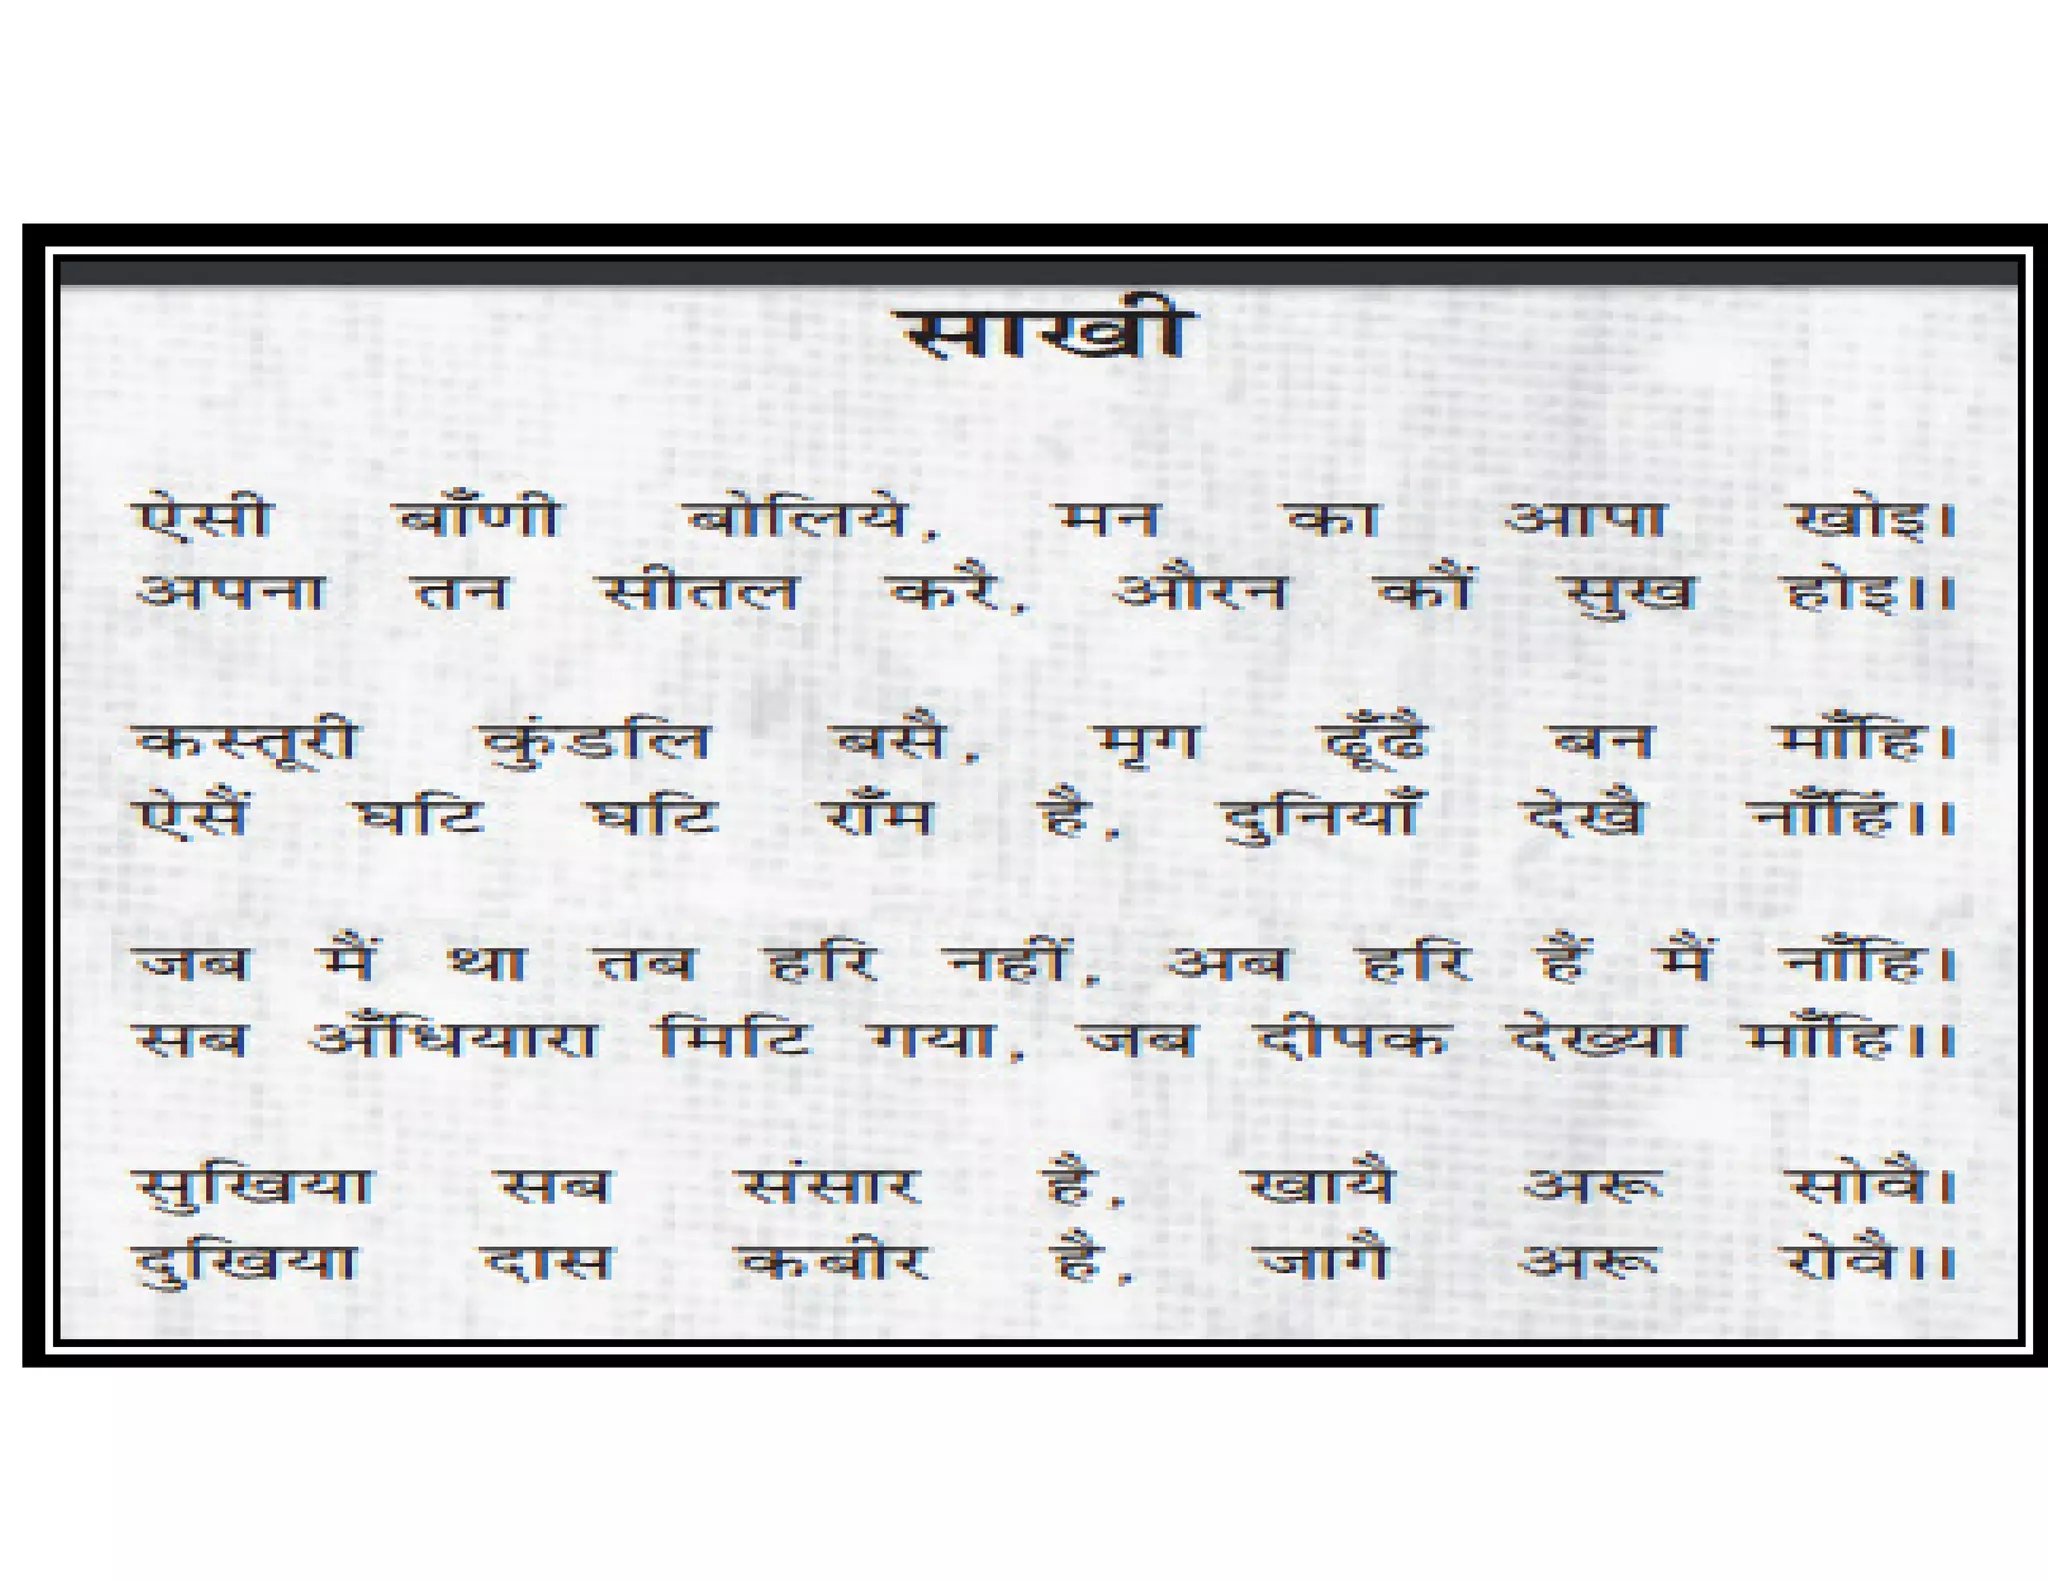 साखी
ऐसी बाँणी बोलिये, मन का आपा खोइ।
अपना तन सीतल करै, औरन कौं सुख होइ।।
कस्तूरी कुंडलि बसै, मृग ढूँढै बन माँहि।
ऐसैं घटि घटि राँम है, दुनियाँ देखै नाँहिं।।
जब मैं था तब हरि नहीं, अब हरि हैं मैं नाँहि।
सब अँधियारा मिटि गया, जब दीपक देख्या माँहि।।
सुखिया सब संसार है, खायै अरू सोवै।
दुखिया दास कबीर है, जागै अरू रोवै।।